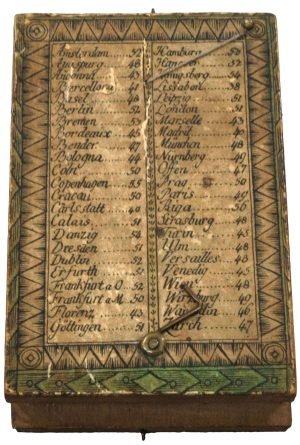 Amsterdam 52
Augspurg 48
Ancona 43
Barcellona 41
Basel 48
Berlin 52
Bremen 53
Bordeaux 45
Bender 47
Bologna 44
Cöln 50
Copenhagen 55
Cracau 50
Carlstatt 49
Calais 51
Danzig 54
Dresden 51
Dublin 52
Erfurth 51
Frankfurt a O 52
Frankfurt a M 50
Florenz 43
Göttingen 51
Hamburg 54
Hanover 52
Königsberg 54
Lissabon 38
Leipzig 51
London 51
Marselle 43
Madrid 40
München 48
Nürnberg 49
Offen 47
Prag 50
Paris 48
Riga 56
Strasburg 48
Turin 45
Ulm 48
Versailles 48
Venedig 45
Wien 48
Würzburg 49
46
47